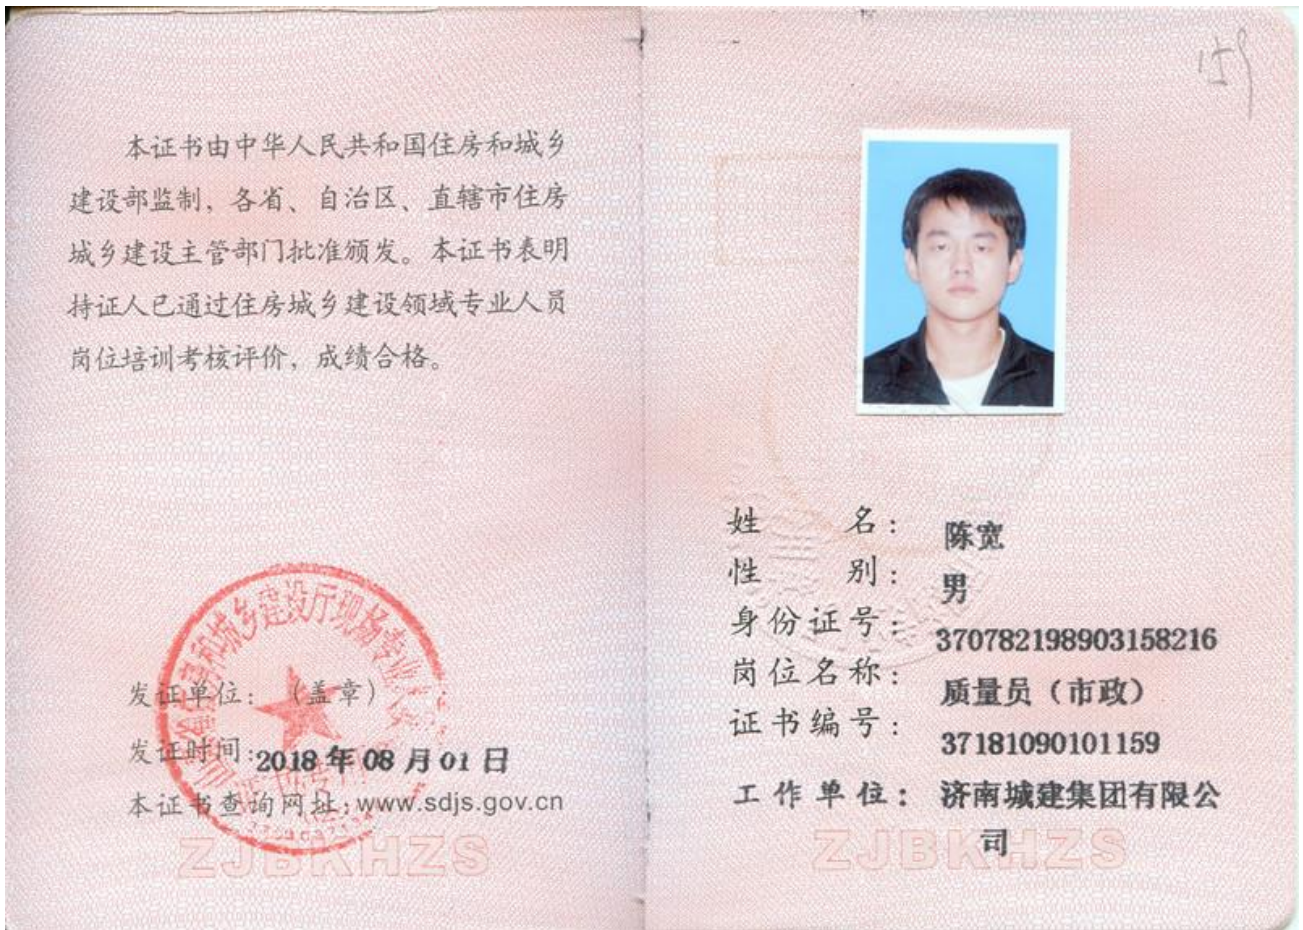 本证书由中华人民共和国住房和城乡
建设部监制，各省、自治区、直辖市住房
城乡建设主管部门批准颁发。本证书表明
持证人已通过住房城乡建设领域专业人员
岗位培训考核评价，成绩合格。
发证单位：（盖章）
发证时间：2018 年 08 月 01 日
本证书查询网址：www.sdjs.gov.cn
ZJBKHZS
姓名：陈宽
性别：男
身份证号：370782198903158216
岗位名称：质量员（市政）
证书编号：37181090101159
工作单位：济南城建集团有限公
司
ZJBKHZS